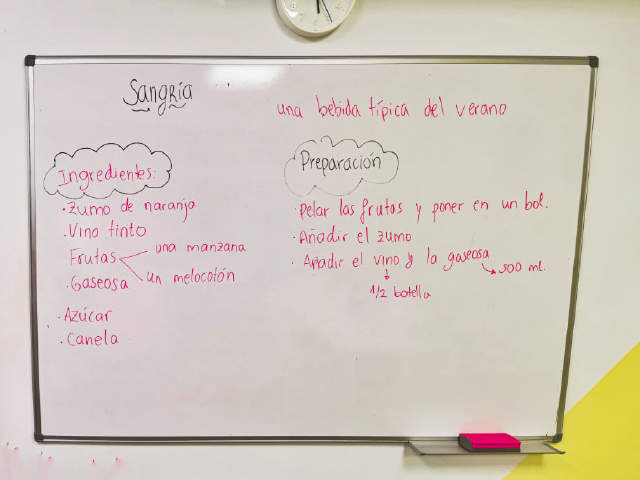 Sangría
una bebida típica del verano
Ingredientes:
· Zumo de naranja
· Vino tinto
Frutas
una manzana
un melocotón
· Gaseosa
· Azúcar
· Canela
Preparación
· Pelar las frutas y poner en un bol.
· Añadir el zumo
· Añadir el vino y la gaseosa
500 ml.
1/2 botella